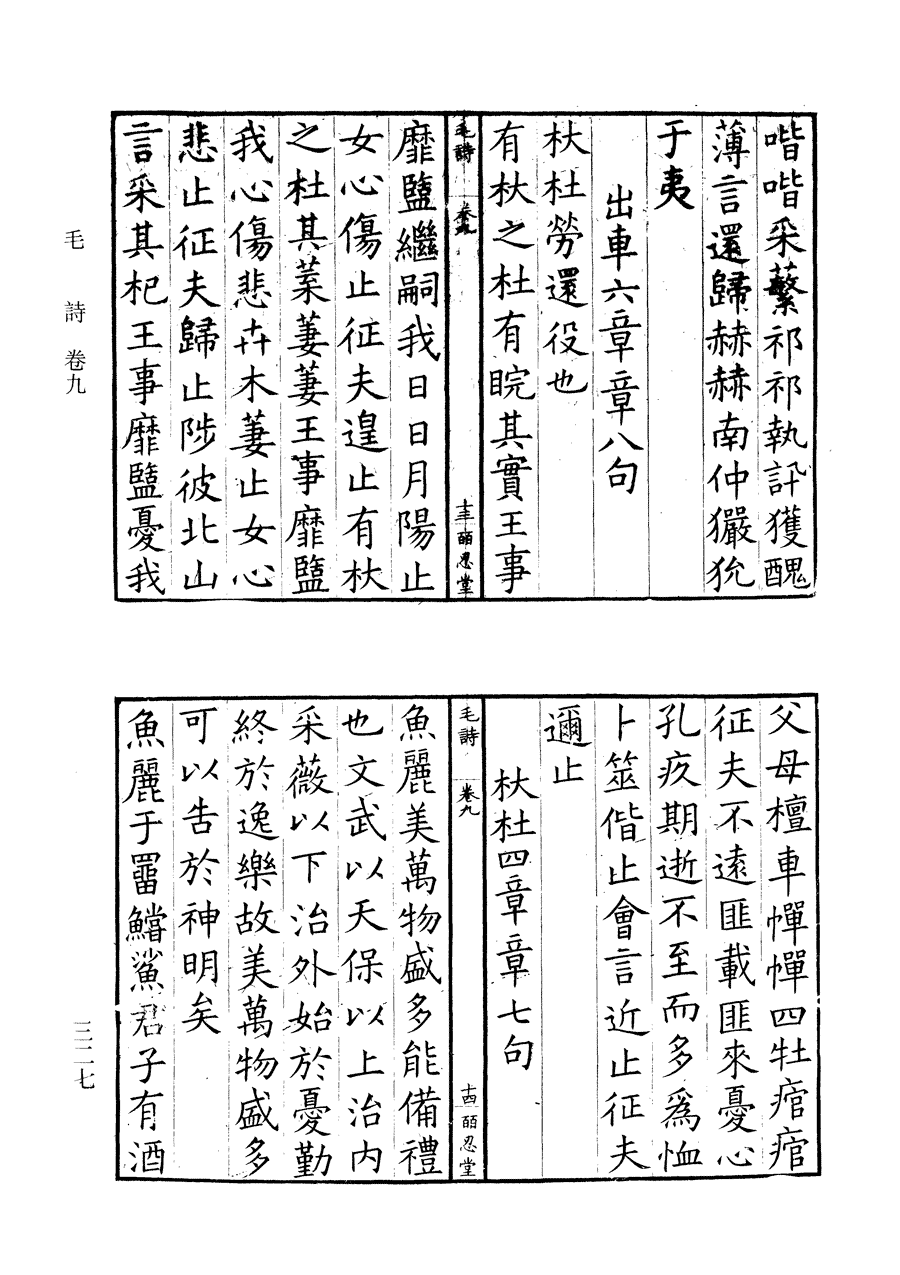 喈喈采蘩祁祁執訊獲醜
薄言還歸赫赫南仲玁狁
于夷
出車六章章八句
杕杜勞還役也
有杕之杜有睆其實王事
毛詩 卷九 十三 皕忍堂
靡盬繼嗣我日日月陽止
女心傷止征夫遑止有杕
之杜其葉萋萋王事靡盬
我心傷悲卉木萋止女心
悲止征夫歸止陟彼北山
言采其杞王事靡盬憂我
毛詩 卷九
父母檀車幝幝四牡痯痯
征夫不遠匪載匪來憂心
孔疚期逝不至而多為恤
卜筮偕止會言近止征夫
邇止
杕杜四章章七句
毛詩 卷九 十四 皕忍堂
魚麗美萬物盛多能備禮
也文武以天保以上治內
采薇以下治外始於憂勤
終於逸樂故美萬物盛多
可以告於神明矣
魚麗于罶鱨鯊君子有酒
三二七